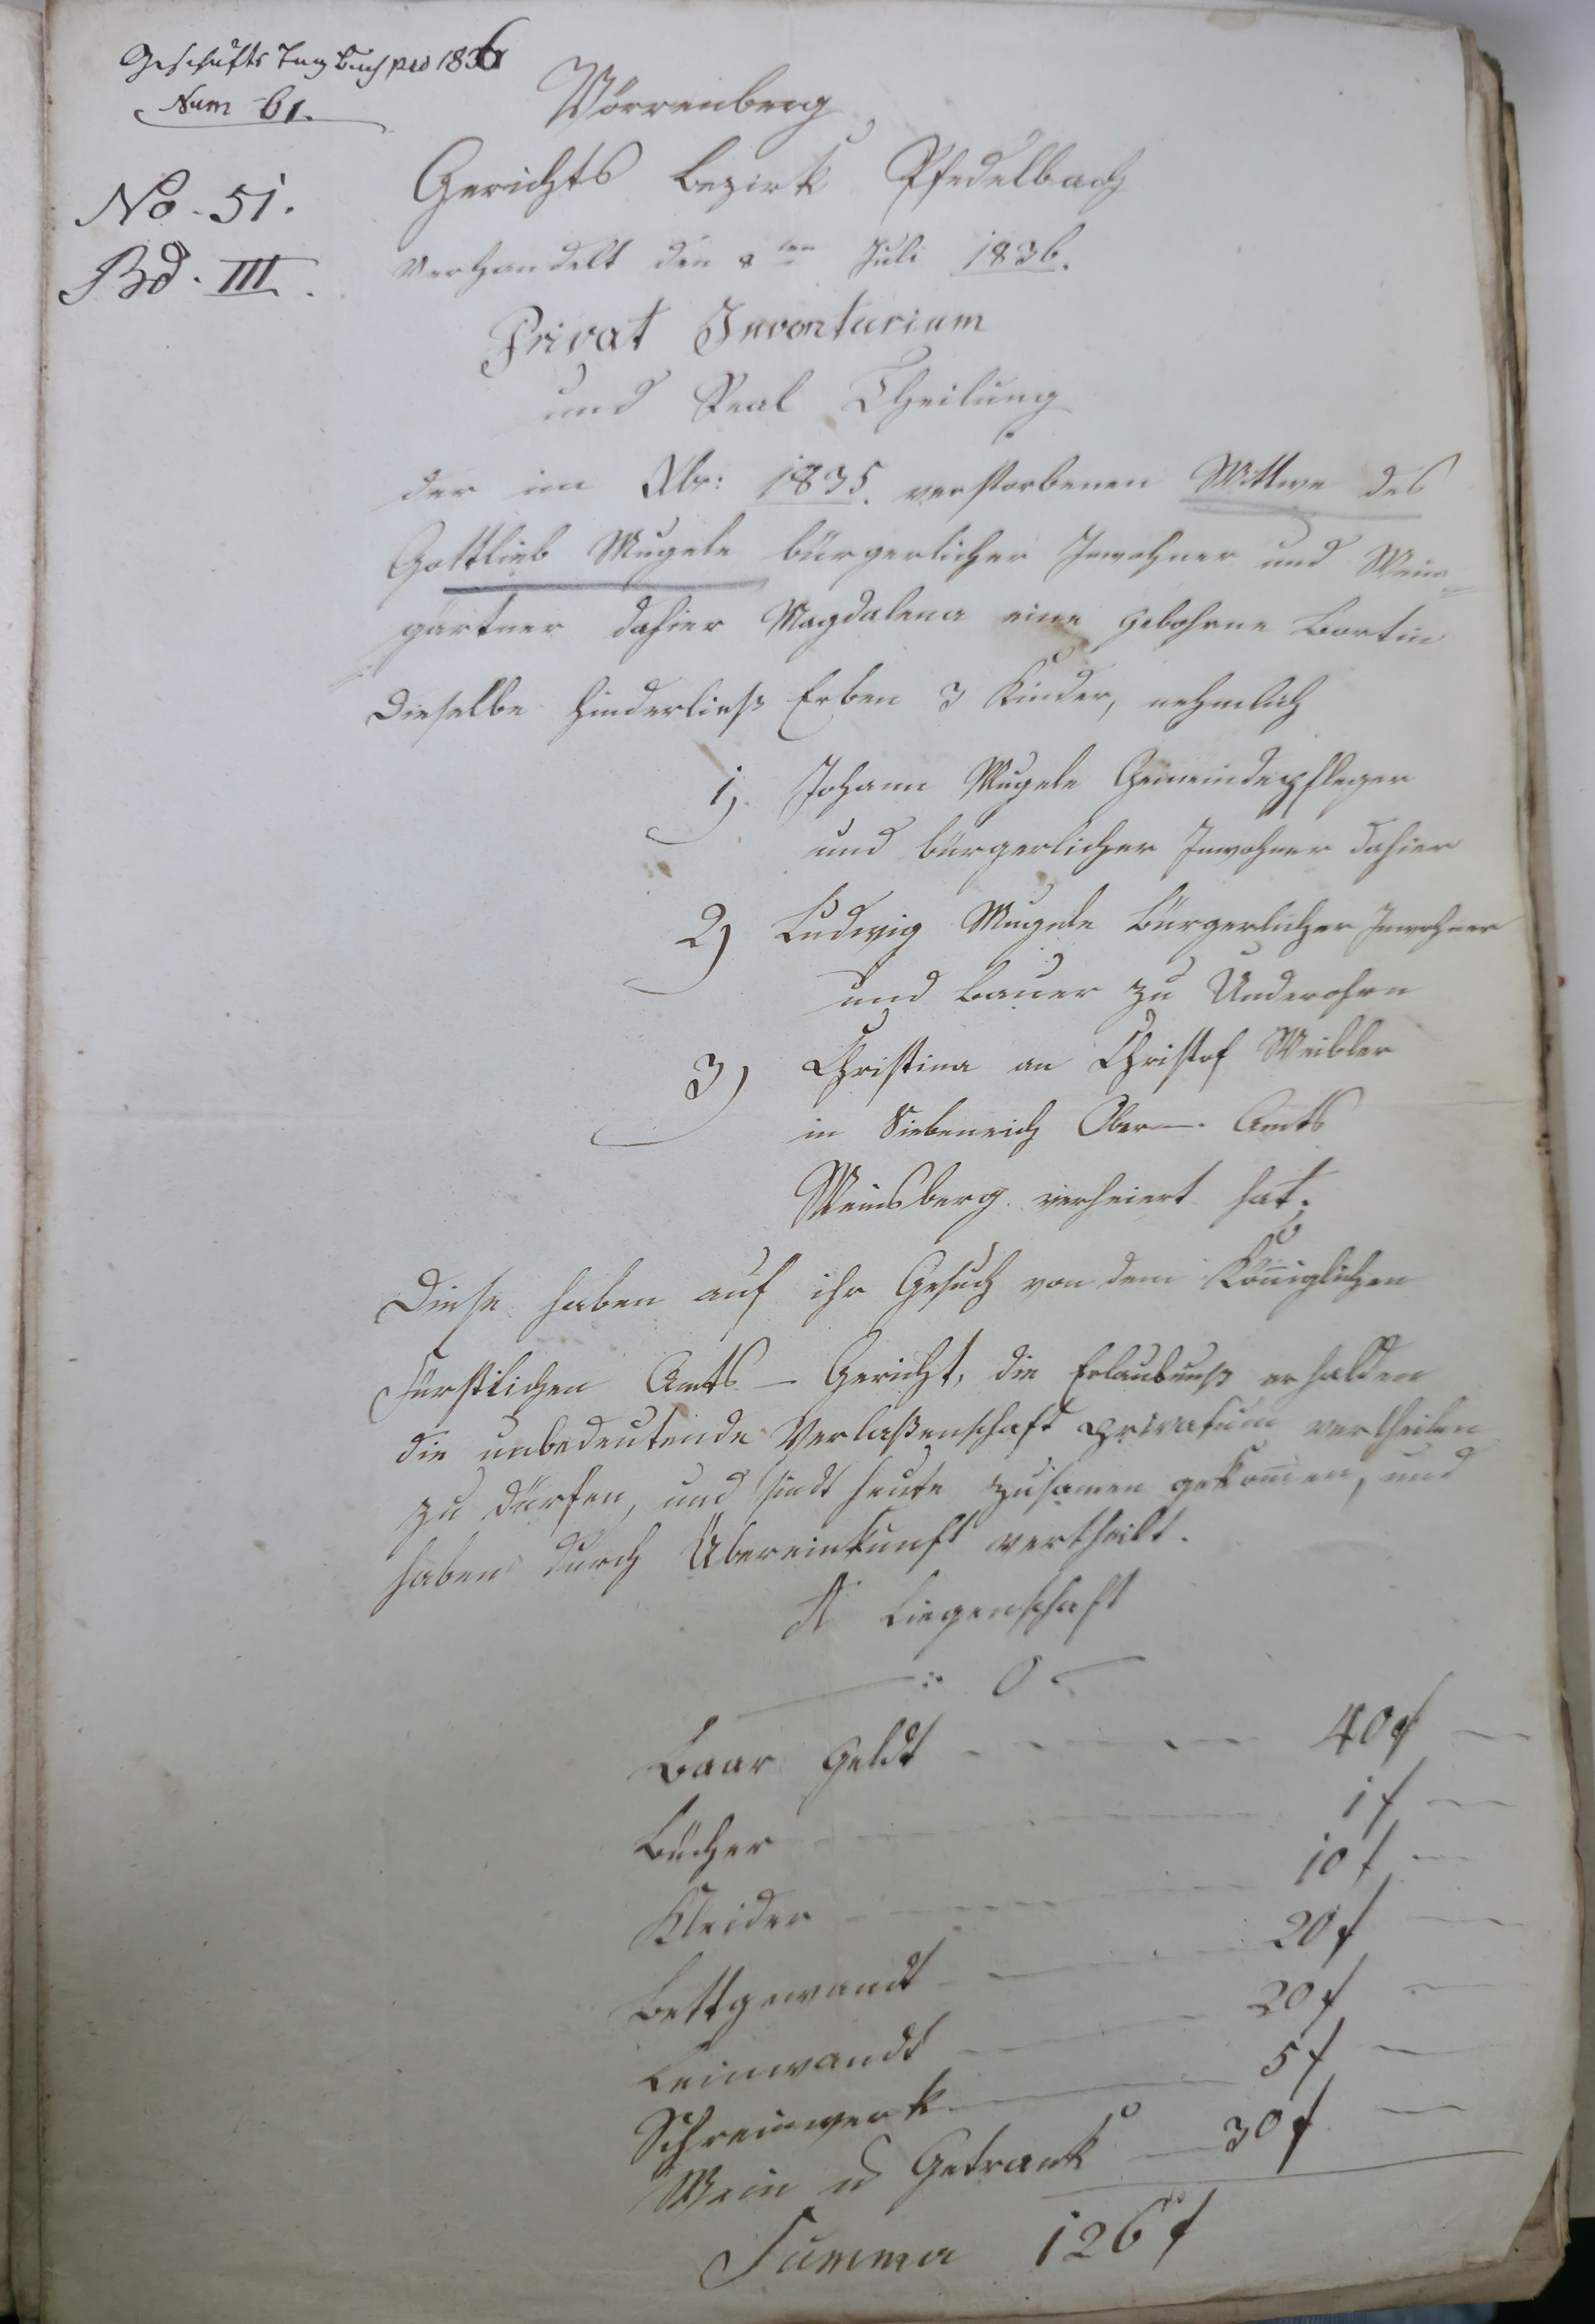 Geschäfts Tag Buch pro 1836
Num 61.
No. 51.
Bd. III.
Wörrenberg
Gerichts Bezirk Pfedelbach
Verhandelt den 8ten Juli 1836.
Privat Inventarium
und Real Theilung
der im 1835. verstorbenen Wittwe des
Gottlieb Mugele bürgerlicher Inwohner und Wein=
gärtner dahier Magdalena eine gebohrne Bortin
Dieselbe hinderließ Erben 3 Kinder, nehmlich
1) Johann Mugele Gemeindepfleger
und bürgerlicher Inwohner dahier
2) Ludwig Mugele bürgerlicher Inwohner
und Bauer zu Underohrn
3) Christina an Christof Weibler
in Siebeneich Ober-. Amts
Weinsberg verheiert hat.
Diese haben auf ihr Gesuch von dem Königlichen
Fürstlichen Amts - Gericht, die Erlaubnuß erhalden
die unbedeutende Verlaßenschaft privatim vertheilen
zu dürfen, und sindt heute zusamen gekommen, und
haben durch Übereinkunft vertheilt.
A Liegenschaft
0
Baar Geldt 40 f
Bücher 1 f
Kleider 10 f
Bettgewandt 20 f
Leinwandt 20 f
Schreinwerk 5 f
Wein u Getrank 30 f
Summa 126 f